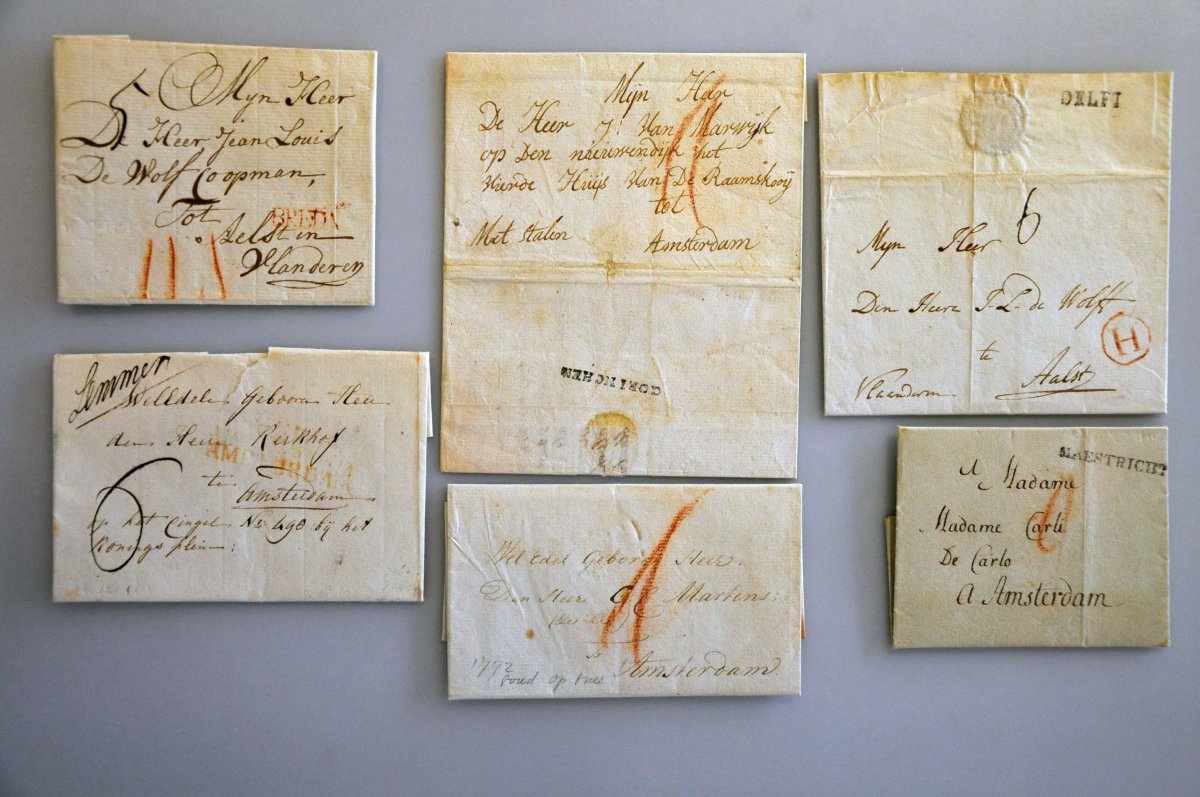 5
Myn Heer
De Heer Jean Louis
De Wolf Coopman,
Tot
Aelst in
Vlanderen
Mijn Heer
De Heer J: Van Marwijk
op Den nieuwendijk het
vierde Huijs Van De Raamskooij
tot
Met stalen Amsterdam
GORINCHEM
DELFT
6
Myn Heer
Den Heere J. L. de Wolff
te
Aalst
Vlaanderen
H
Lemmer
Welledele Geboore Heer
den Heere Kerkhof
AMSTERDAM
te
Amsterdam
6
op het Cingel No 498 bij het
Konings plein:
Wel edel Geboren Heer
Den Heere Martens
Amsterdam
1792
MAESTRICHT
A Madame
Madame Carli
De Carlo
A Amsterdam